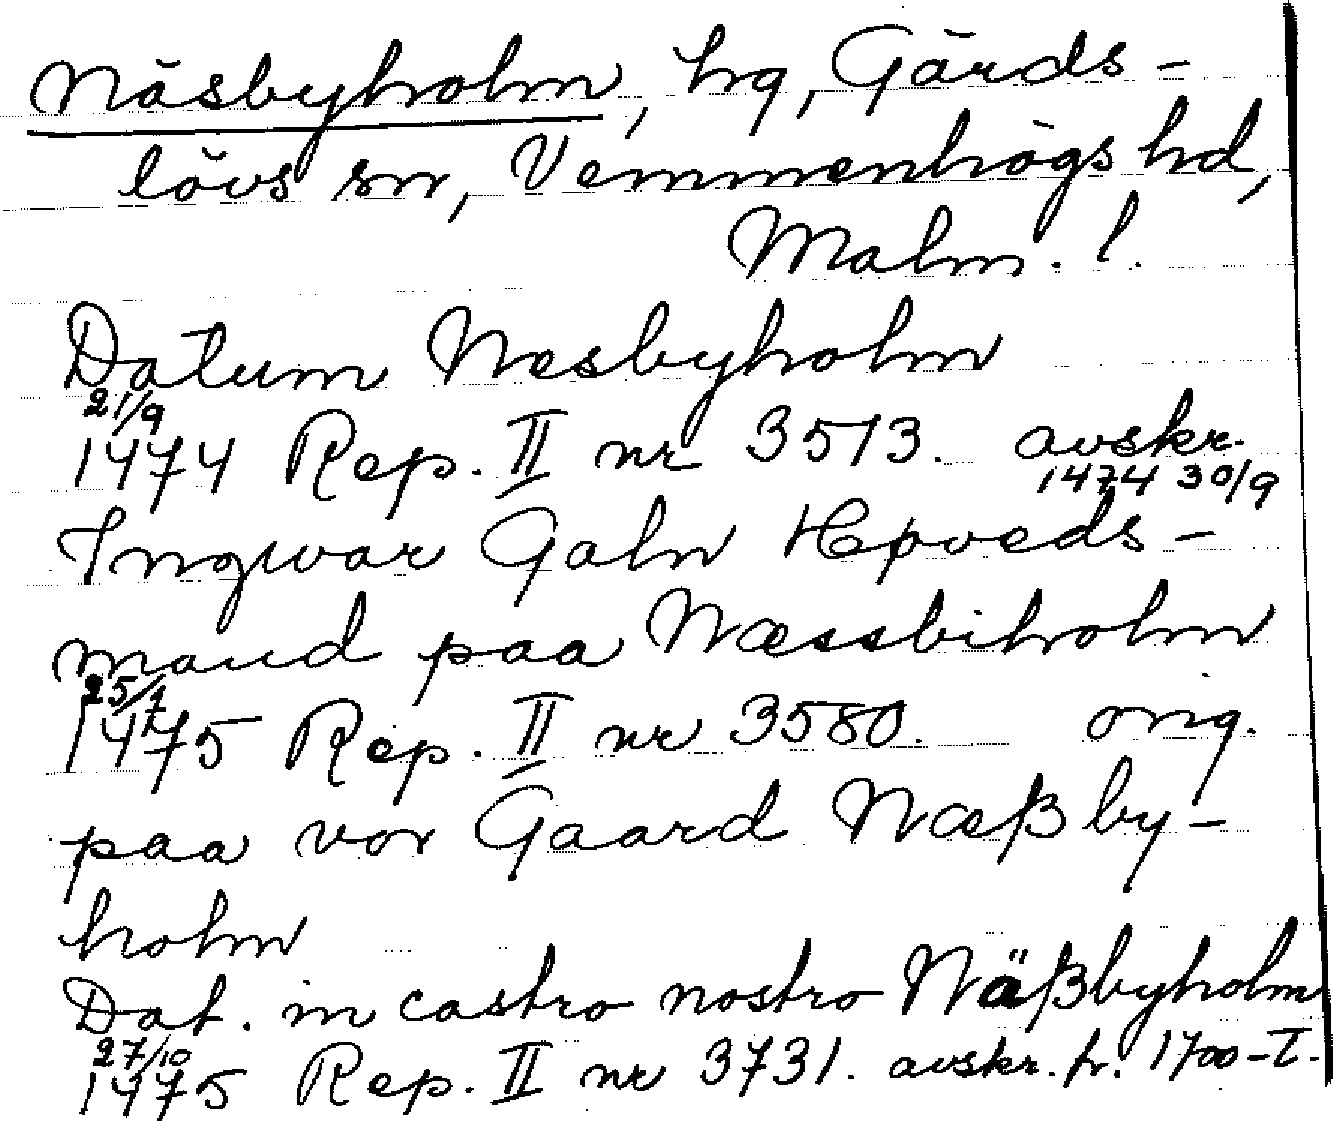 Näsbyholm, hg, Gärds-
lövs sn, Vemmenhögs hd,
Malm. l.
Datum Nesbyholm
21/9
1474 Rep. II nr 3513. avskr.
1474 30/9
Ingwar Galn Høveds-
mand paa Næssbiholm
25/1
1475 Rep. II nr 3580. orig.
paa vor Gaard Næßby-
holm
Dat. in castro nostro Näßbyholm
27/10
1475 Rep. II nr 3731. avskr. fr. 1700-t.